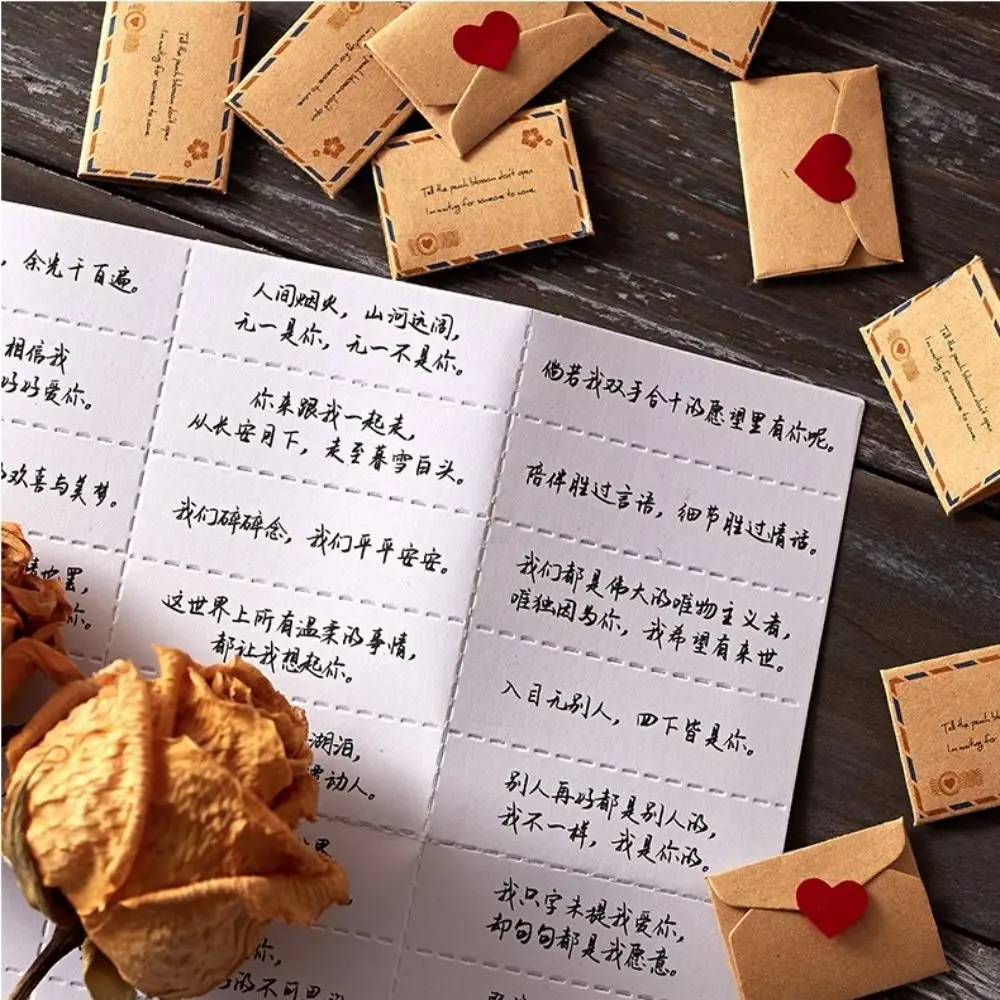 Tell the peach blossom don't open
I'm waiting for someone to come
Tell the peach blossom don't open
I'm waiting for someone to come
Tell the peach blossom don't open
I'm waiting for someone to come
Tell the peach blossom don't open
I'm waiting for someone to come
Tell the peach
I'm waiting for
，余光千百遍。
相信我
好好爱你。
欢喜与美梦。
你。
人间烟火，山河远阔，
无一是你，无一不是你。
你来跟我一起走，
从长安月下，走至暮雪白头。
我们碎碎念，我们平平安安。
这世界上所有温柔的事情，
都让我想起你。
湖泊，
动人。
倘若我双手合十的愿望里有你呢。
陪伴胜过言语，细节胜过情话。
我们都是伟大的唯物主义者，
唯独因为你，我希望有来世。
入目无别人，四下皆是你。
别人再好都是别人的，
我不一样，我是你的。
我只字未提我爱你，
却句句都是我愿意。